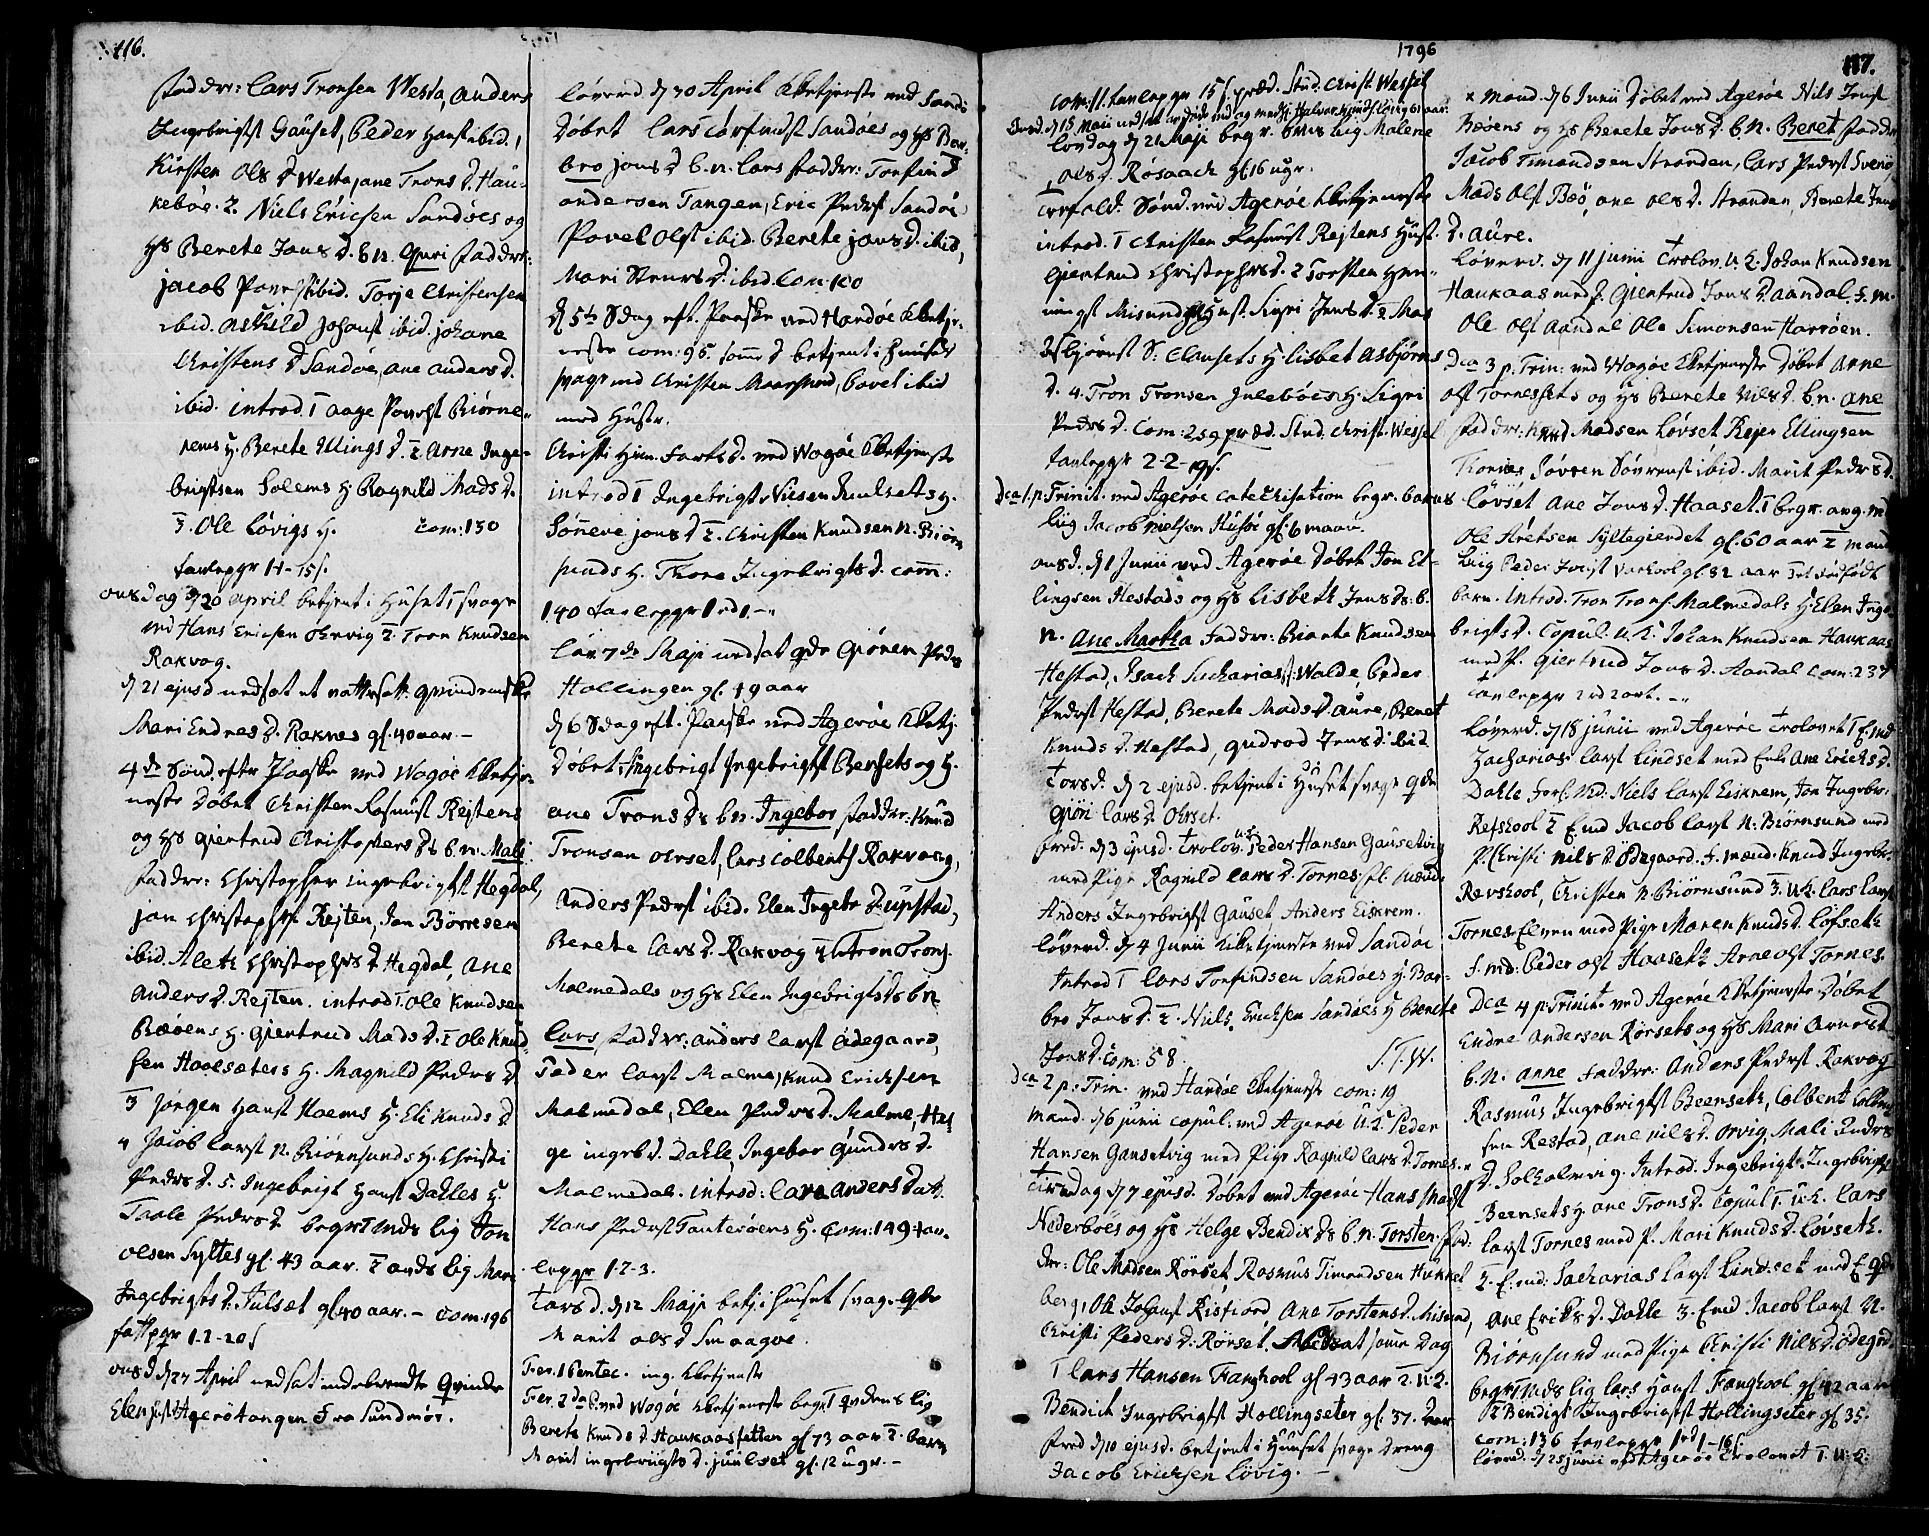 116.
fadder: Lars Tronsen Vesta, Anders
Ingebrigtst Gauset, Peder Hanst ibid.,
Kirsten Ols D Vesta, ane Trons D. Hau-
kebøe. 2. Niels Ericsen Sandøes og
HS Berete Jons D. b.n. Guri faddr:
Jacob Povelst ibid. Torje Christensen
ibid. Johanst ibid. Johane
Christens D Sandøe, ane anders D.
ibid. introd 1 aage Povelst Biørne-
rems H. Berete Ellings D. 2 Arne Inge-
brigtsen Solems H Ragnild Mads D.
3. Ole Løvigs H. Com: 130
tavlepgr 14-15 s.
onsdag d 20 april betjent i Huset 1 svage
md Hans Ericsen ohrvig 2. Tron Knudsen
Rakvog.
d 21 ejusd nedsat et qvindemske
Mari Endres D. Raknes gl. 40 aar.-
4de Sønd. efter Paaske ved Wogøe Kbetje-
neste Døbet Christen Rasmust Rejtens
og HS Giertrud Christophers D b.n. Mali
faddr: Christopher ingebrigtst Hegdal,
jon Christophst Rejten, Jon Børresen
ibid. Aleth Christophrs D Hegdal, Ane
Anders D. Rejten. introd 1. Ole Knudsen
Bæøens H. Giertrud Mads D. 2 Ole Knud-
sen Haalsæters H. Magnild Peders D
3 Jørgen Hanst Haems H. Eli Knuds D
4 Jacob Larst N. Biørnsunds H. Christi
Peders D. 5. Ingebrigt Hanst Dahles H.
Taale Peders D begr. 1 Mds lig Jon
olsen Syltes gl. 43 aar. 2 ands lig Mari
Ingebrigts D. Julset gl 40 aar.- Com. 196
fattpgr 1-2-20 s
onsd. d 27 April nedsat qvinde
Elen Agerøtangen fra Sundmør.
løverd d 30 April Kbetjeneste ved Sandø
Døbet Lars Torfindst Sandøes og HS Bar-
bro Jons D b.n. Lars faddr: Torfin
andersen Tangen, Eric Pederst Sandøe
Povel Olst ibid. Berete Jons D. ibid,
Mari D. ibid. Com: 100
d 5te Sdag eft. Paaske ved Hardøe Kbetje-
neste Com: 95. samme D betjent i Huuset
svage md Christen ibid
med Hustr.
Christi Him. farts D. ved Wogøe Kbetjenste
introd 1 Ingebrigt Nielsen Julsets H.
Sønneve Jons D 2. Christen Knudsen N. Biørn-
sunds H. Thore Ingebrigts D. Com:
140 tavlepgr 1 rd 1-"
Løv. 7de Maji nedsat qde Giøren Peders D
Hollingen gl. 49 aar
d 6 Sdag eft. Paaske ved Agerøe Kbetj.
Døbet Ingebrigt Ingebrigtst Bersets og H.
ane Trons Ds bn. Ingebor faddr. Knud
Tronsen Ohrset, Lars Colbents Rakvaag,
Anders Pederst ibid. Elen Ingebr D. Upstad,
Berete Lars D. Rakvog 2 Tron Trons.
Malmedals og HS Elen Ingebrigts D b.n.
Lars, faddr: Anders Larst Ødegaard,
Peder Larst Malme, Knud Ericksen
Malmedal, Elen Peders D. Malme, Hel-
ge ingebr D. Dahle, Ingebor Gunders D.
Malmedal. introd: Anders Datt.
Hans Pederst Tauterøens H. Com: 149 tav-
lepgr 1-2-3.
Torsd. d 12 Maji betj. i Huset svag. qde
Marit ols D Smaagøe.
Fer. 1 Pentec. ing. Kbetjenste
Fer. 2da P. ved Wogøe Kbetjeneste begr. 1 qvdens lig
Berete Knuds D Haukaassetten gl 73 aar 2. barn
Marit ingebrigts D. Juulset gl. 12 ugr.-
1796
117.
Com: 11. tavlepgr 15 s. præd. Stud. Christ. Wessel
Sønd. d 15 Maii
Løvdag d 21 Maji begr. brns lig Malene
ols D. Røsaack gl. 16 ugr.
Trefold. Sønd. ved Agerøe Kbetjeneste
introd. 1 Christen Rasmust Rejtens Hust.
Giertrud Christophrs D. 2 Torsten Hen-
ningst Misund Hust. Sigri Jens D. 3 Mas
Asbjørnst S. Clausets H. Lisbet Asbjørns
D. 4. Tron Tronsen Julebøes H. Sigri
Peders D. Com: 259 præd. Stud. Christ. Wessel
tavlepgr 2-2-19 s.
Dca 1. p. Trinit. ved Agerøe Catechisation begr. barns
liig Jacob Nielsen Husøe gl: 6 maan.
onsd. d 1 Junii ved Agerøe Døbet Jon El-
lingsen Hestads og HS Lisbeth Jens Ds. b.
n. Ane Martha faddr: Biørnte Knudsen
Hestad, Isach Zachariast: Walde, Peder
Pederst Hestad, Berete Mads D. Aure, Beret
Knuds D. Hestad, Gudrod Jens D. ibid
Torsd. d 2 ejusd. betjent i Huset svage qde
Giøri Lars D. Ohrset.
fred. d 3 ejusd. Trolov. u.k. Peder Hansen Gausetvig
med Pige Ragnild Lars D. Tornes. fl. mænd
Anders Ingebrigtst Gauset Anders Eiskrem.
Løverd. d 4 Junii Kbetjeneste ved Sandøe
Introd 1 Lars Torfindsen Sandøes H. Bar-
bro Jons D. 2. Niels Ericksen Sandøes H Berete
Jons D. Com: 58. S.T.W.
Dca 2 p: Trin. ved Hardøe Kbetjeneste Com: 19
Mand. d 6 Junii Copul. ved Agerøe U.K. Peder
Hansen Gausetvig med Pige Ragnild Lars D. Tornes.
Tirsdag d 7 ejusd. Døbet ved Agerøe Hans
Nederbøes og HS Helge Bendix Ds b.n. Torsten. fad-
der: Ole Madsen Rørset Rasmus Timandsen Hukkel-
berg, Ole Johanst Risfiord, Ane Torstens D. Misund,
Christi Peders D. Rørset. Nedsat samme Dag
1 Lars Hansen Fanghool gl. 43 aar 2. U.k.
Bendict Ingebrigtst Hollingseter gl. 37. aar
fred d 10 ejusd. betjent i Huuset svage Dreng
Jacob Ericksen Løvig.-
x mand. d 6 Junii Døbet ved Agerøe Nils Jenst
Bæøens og HS Berete Jons D. b.n. Beret faddr
Jacob Timandsen Stranden, Lars Pederst Sverie,
Mads Olst Bæø, ane Ols D. Stranden, Berete Jens
D. Aure.
Løverd. d 11 Junii Trolov. U.k. Johan Knudsen
Haukaas med P. Giertrud Jons D. Aandal f.m.
Ole Olst Aandal Ole Simonsen Harrøen.
Dca 3 p. Trin: ved Wogøe Kbetjeneste Døbet Arne
Olst Tornessets og HS Berete Nils D. b.n. Ane
faddr: Knud Madsen Løvset Rejer Ellingsen
Thornes Søvren Sørenst ibid. Marit Peders D.
Løvset Ane Jons D. Haaset. 1 begr. ang. md
Ole Aretsen Syltegierdet gl. 60 aar 2 mand
liig Peder gl 32 aar 3 et dødfødt
barn. Introd. Tron Trons. Malmedals H. Elen Inge-
brigts D. Copul. U.k. Johan Knudsen Haukaas
med P. Giertrud Jons D. Aandal Com: 237
tavlepgr 2 rd 2 ort. -"
Løverd. d 18 Junii ved Agerøe Trolovet 1 E. md
Zacharias Larst Lindset med Enke Ane Ericks D.
Dahle forl. Md. Niels Larst Eiskrem, Jon Ingebr.
Refshool 2 E. md Jacob Larst N. Biørnsund med
P. Christi Nils D Ødegaard. f. mænd. Knud Ingebr.
Revshool, Christen N. Biørnsund 3. U.k. Lars Larst
Tornes Elven med Pige Maren Knuds D. Løfseth
f. md: Peder Olst Haaseth Arne Olst Tornes.
Dca 4 p. Trinit. ved Agerøe Kbetjenste Døbet
Endre Andersen Rørsets og HS Mari Arnes D
b.n. Anne faddr: Anders Pederst Rakvog
Rasmus Ingebrigtst Beenseth, Colbent Colben-
sen Restad, Ane Nils D. Orvig, Mali Endres
D. Solholmen. Introd. Ingebrigt Ingebrigtst
Beensets H ane Trons D. Copul 1. u.k. Lars
Larst Tornes med P. Mari Knuds D. Løvseth.
2. E. md: Zacharias Larst Lindset med E. qde
Ane Ericks D. Dahle 3. E md Jacob Larst N.
Biørnsund med Pige Christi Nils D. Ødegrd.
begr. 1 Mds lig Lars Hanst Fanghool gl. 42 aar
2 Bendigt Ingebrigtst Hollingseter gl 35.
Com: 136 tavlepgr 1 rd 1-16 s
Løverd. d 25 Junii ved Agerøe Trolovet 1. U.k.